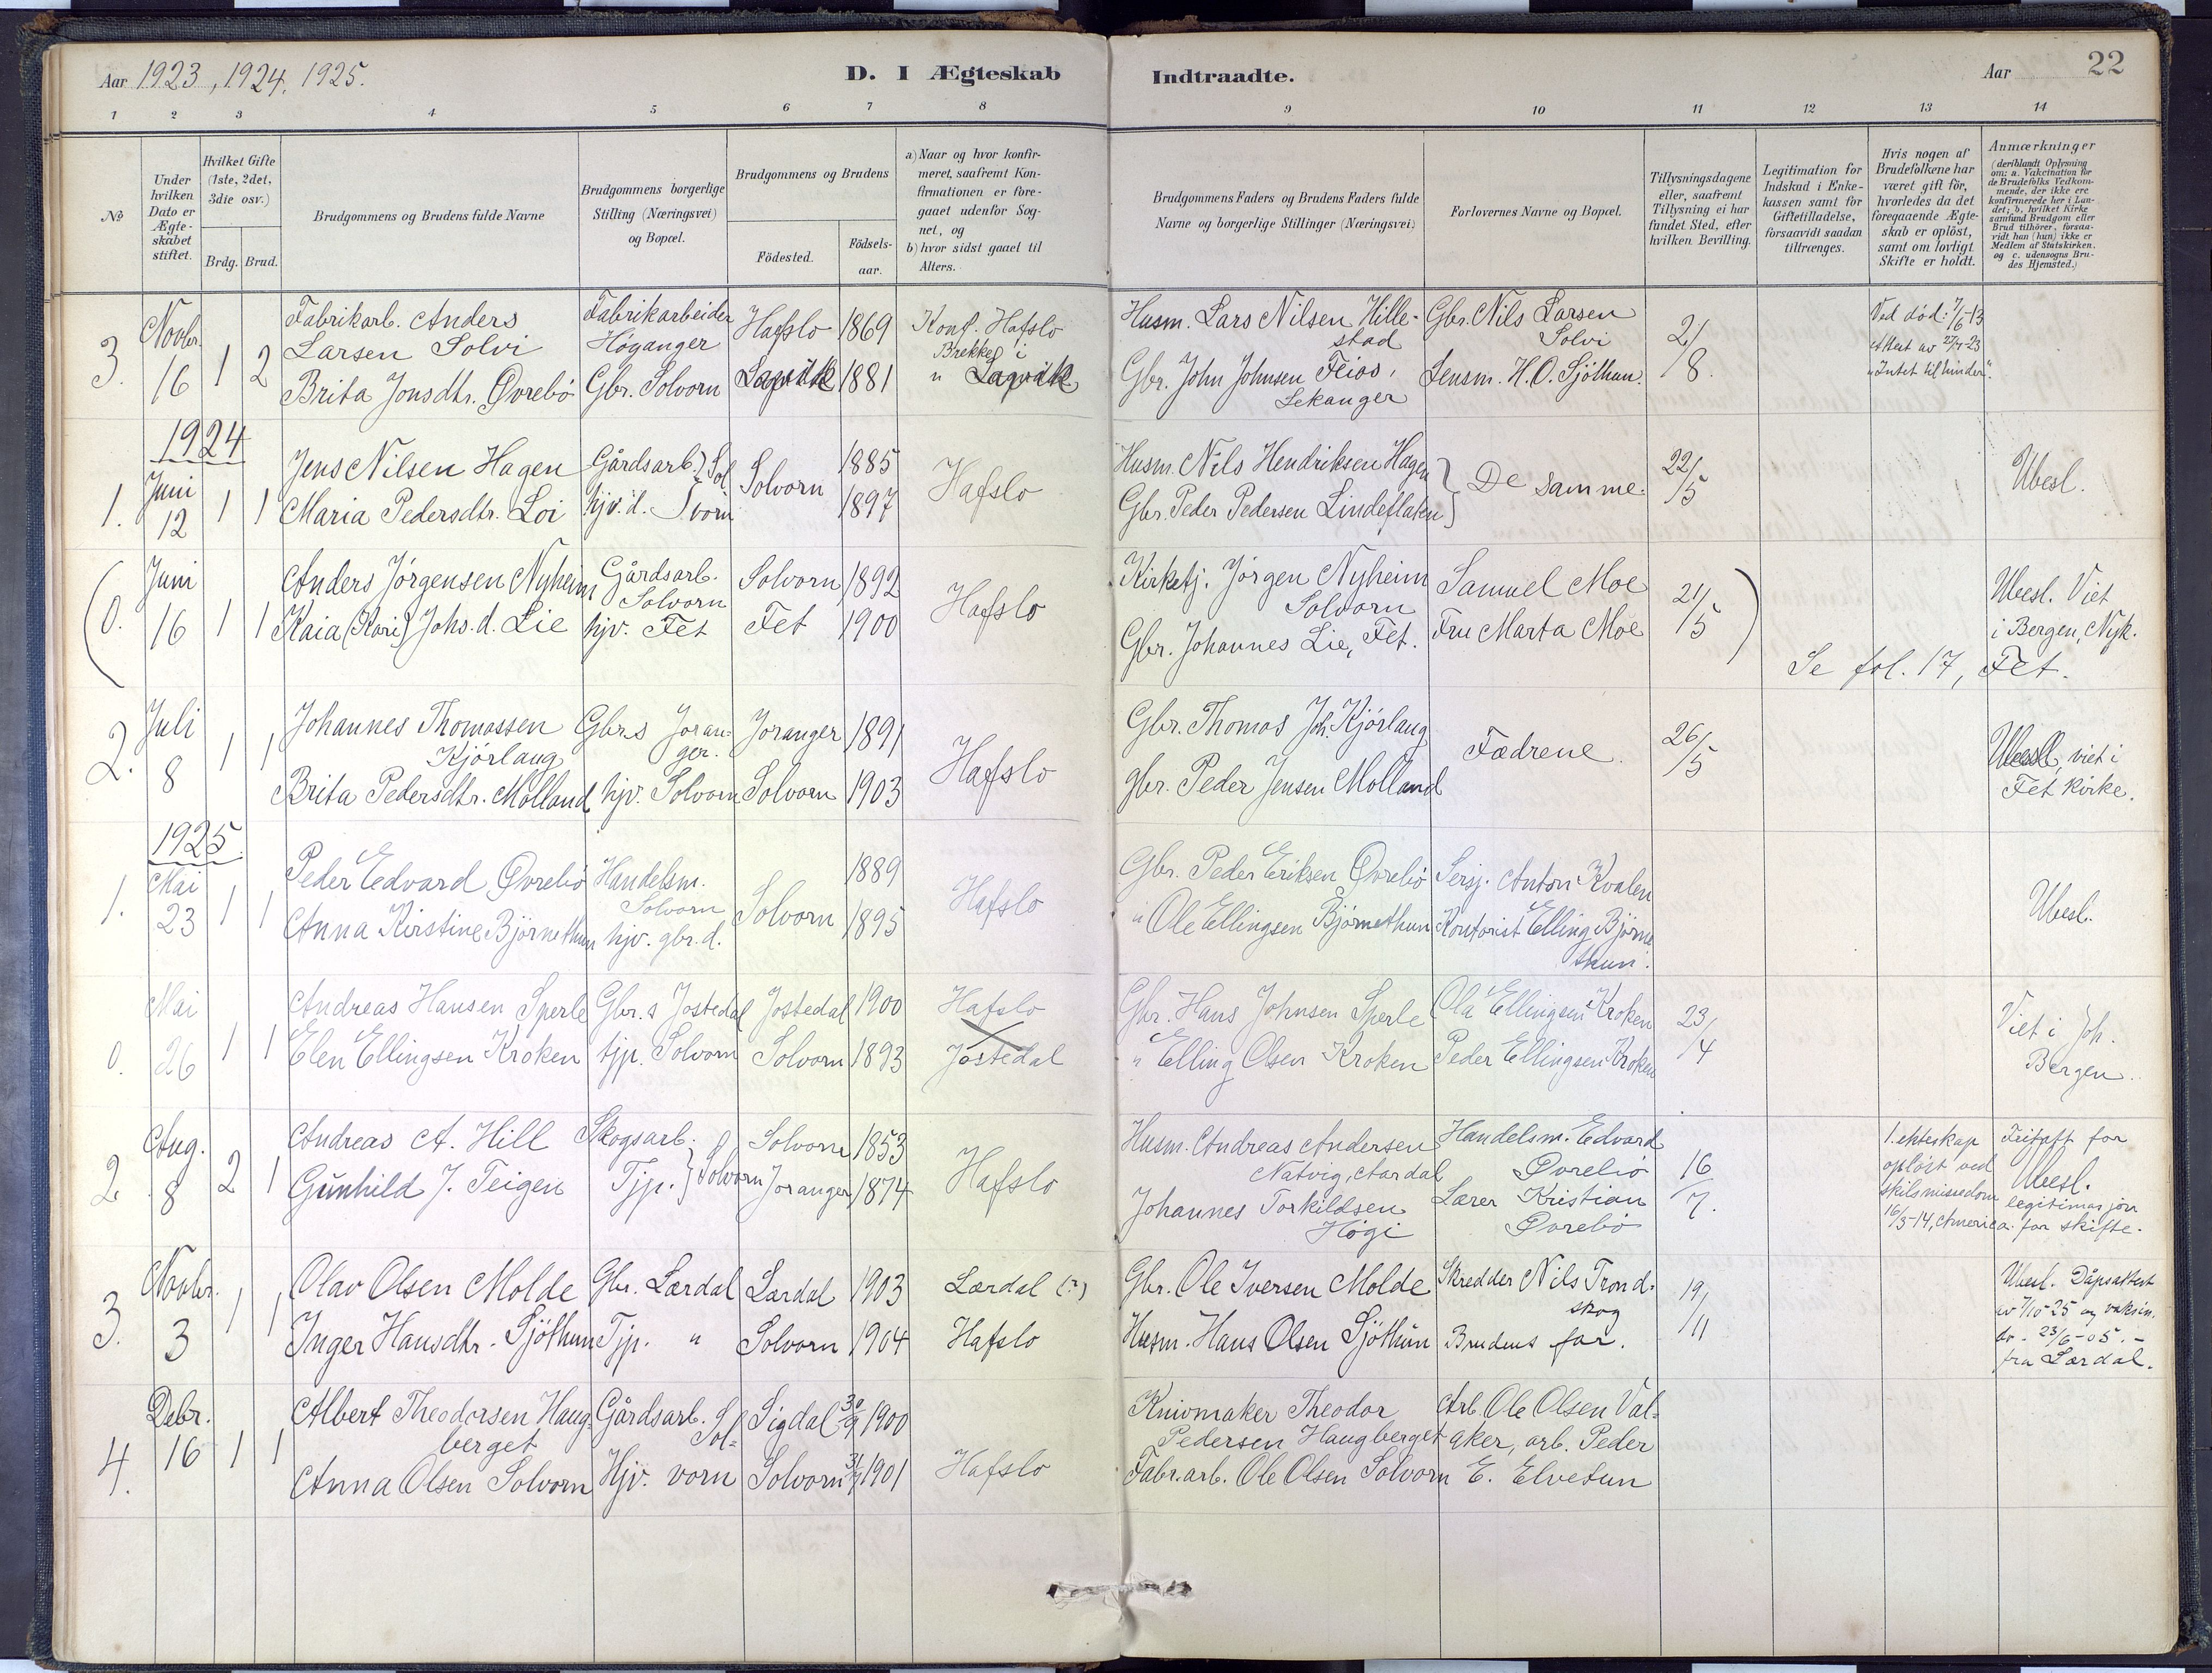 Aar 1923, 1924, 1925.
D. I Ægteskab
Indtraadte.
Aar
22
1 2 3 4 5 6 7 8 9 10 11 12 13 14
No
Under hvilken Dato er Ægte-skabet stiftet.
Hvilket Gifte (1ste, 2det, 3die osv.)
Brdg. Brud.
Brudgommens og Brudens fulde Navne
Brudgommens borgerlige Stilling (Næringsvei) og Bopæl.
Brudgommens og Brudens
Födested.
Födsels-aar.
a) Naar og hvor konfir-meret, saafremt Kon-firmationen er fore-gaaet udenfor Sog-net, og
b) hvor sidst gaaet til Alters.
Brudgommens Faders og Brudens Faders fulde Navne og borgerlige Stillinger (Næringsvei)
Forlovernes Navne og Bopæl.
Tillysningsdagene eller, saafremt Tillysning ei har fundet Sted, efter hvilken Bevilling.
Legitimation for Indskud i Enke-kassen samt for Giftetilladelse, forsaavidt saadan tiltrænges.
Hvis nogen af Brudefolkene har været gift för, hvorledes da det foregaaende Ægte-skab er oplöst, samt om lovligt Skifte er holdt.
Anmærkninger
(deriblandt Oplysning om: a. Vakcination for de Brudefolks Vedkom-mende, der ikke ere konfirmerede her i Lan-det; b. hvilket Kirke samfund Brudgom eller Brud tilhörer, forsaa-vidt han (hun) ikke er Medlem af Statskirken, og c. udensogns Bru-des Hjemsted.)
3. Novbr. 16 1 2
Fabrikarb. Anders Larsen Solvi
Brita Jonsdtr. Øvrebö
Fabrikarbeider Höganger
Gbr. Solvorn
Hafslo 1869
1881
Konf. Hafslo
Brekke i
Husm. Lars Nilsen Hille-stad
Gbr. John Johnsen Feios, Lekanger
Gbr. Nils Larsen Solvi
Lensm. H. O. Sjöthun.
2/8.
Ved död: 7/6-13
"Intet til hinder".
1924
1. Juni 12 1 1
Jens Nilsen Hagen
Maria Pedersdtr. Loi
Gårdsarb. Sol
hjv. d. vorn
Solvorn
1885
1897
Hafslo
Husm. Nils Hendriksen Hagen
Gbr. Peder Pedersen Lindeflaten
De samme.
22/5
Ubesl.
(0. Juni 16 1 1
Anders Jörgensen Nyheim
Kaia (Kari) Johs. d. Lie
Gårdsarb. Solvorn
hjv. Fet
Solvorn 1892
Fet 1900
Hafslo
Kirketj. Jörgen Nyheim Solvorn
Gbr. Johannes Lie, Fet.
Samuel Moe
Fru Marta Moe
21/5)
Ubesl. Viet i Bergen, Nyk.
Se fol. 17, Fet.
2. Juli 8 1 1
Johannes Thomassen Kjörlaug
Brita Pedersdtr. Molland
Gbr.s Joran-ger.
hjv. Solvorn
Joranger 1891
Solvorn 1903
Hafslo
Gbr. Thomas Joh. Kjörlaug
gbr. Peder Jensen Molland
Fædrene.
26/5
Ubesl, viet i Fet kirke.
1925.
1. Mai 23 1 1
Peder Edvard Øvrebö
Anna Kirstine Björnethun
Handelsm. Solvorn
hjv. gbr. d.
Solvorn
1889
1895
Hafslo
Gbr. Peder Eriksen Øvrebö
" Ole Ellingsen Björnethun
Sersj. Anton Kvalen
Kontorist Elling Björne thun.
Ubesl.
0. Mai 26 1 1
Andreas Hansen Sperle
Elen Ellingsen Kroken
Gbr. s Jostedal
tjp. Solvorn
Jostedal 1900
Solvorn 1893
Hafslo
Jostedal
Gbr. Hans Johnsen Sperle
" Elling Olsen Kroken
Ola Ellingsen Kroken
Peder Ellingsen Kroken
23/4
Viet i Joh. Bergen.
2 Aug. 8 2 1
Andreas A. Hill
Gunhild J. Teigen
Skogsarb.
Tjp. } Solvorn
Solvorn 1853
Joranger 1874
Hafslo
Husm. Andreas Andersen Natvig, Aardal
Johannes Torkildsen Högi
Handelsm. Edvard Øvrebö
Lærer Kristian Øvrebö
16/7.
1. ekteskap oplöst ved skilsmissedom 16/3-14, America.
for Ubesl. legitimasjon for skifte.
3. Novbr. 3 1 1
Olav Olsen Molde
Inger Hansdtr. Sjöthun
Gbr. Lærdal
Tjp. "
Lærdal 1903
Solvorn 1904
Lærdal (?)
Hafslo
Gbr. Ole Iversen Molde
Husm. Hans Olsen Sjöthun
Skredder Nils Trond-skog
Brudens far.
19/11
Ubesl. Dåpsattest
av 7/10-25 og vaksin.
do - 23/6-05. -
fra Lærdal.
4. Debr. 16 1 1
Albert Theodorsen Haug-berget
Anna Olsen Solvorn
Gårdsarb. Sol-
Hjv. vorn
Sigdal 30/9 1900
Solvorn 1901
Hafslo
Knivmaker Theodor Pedersen Haugberget
Fabr.arb. Ole Olsen Solvorn
Arb. Ole Olsen Val-aker, arb. Peder E. Elvetun